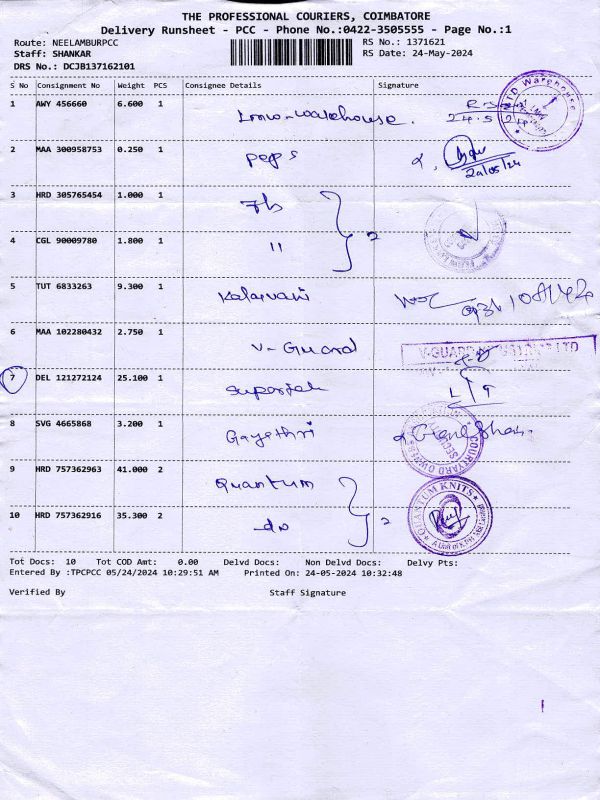 THE PROFESSIONAL COURIERS, COIMBATORE
Delivery Runsheet - PCC - Phone No.:0422-3505555 - Page No.:1
Route: NEELAMBURPCC RS No.: 1371621
Staff: SHANKAR RS Date: 24-May-2024
DRS No.: DCJB137162101
S No Consignment No Weight PCS Consignee Details Signature
1 AWY 456660 6.600 1 warehouse. 24.5
2 MAA 300958753 0.250 1 peps
3 HRD 305765454 1.000 1 7h
4 CGL 90009780 1.800 1 " 2
5 TUT 6833263 9.300 1 Kalaivani
6 MAA 102280432 2.750 1 V-Guard V-GUARD LTD
7 DEL 121272124 25.100 1 Supertek
8 SVG 4665868 3.200 1 Gayethri COURTYARD OWNERS
9 HRD 757362963 41.000 2 Quantum QUANTUM KNITS
10 HRD 757362916 35.300 2 -do 2
Tot Docs: 10 Tot COD Amt: 0.00 Delvd Docs: Non Delvd Docs: Delvy Pts:
Entered By :TPCPCC 05/24/2024 10:29:51 AM Printed On: 24-05-2024 10:32:48
Verified By Staff Signature